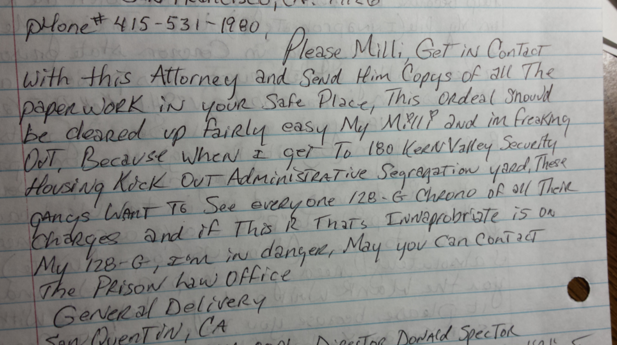 San Francisco, CA.
pHone# 415-531-1980,
Please Milli, Get in Contact
with this Attorney and Send Him Copys of all The
paperwork in your Safe Place, This Ordeal Should
be cleared up fairly easy My Milli and im freaking
Out, Because when I get To 180 Kern Valley Security
Housing Kick Out Administrative Segregation yard, These
gangs Want To See everyone 128-G Chrono of all Their
Charges and if This R Thats Innaprobriate is on
My 128-G, I'm in danger, May you Can Contact
The Prison Law Office
General Delivery
San Quentin, CA
Director Donald Spector